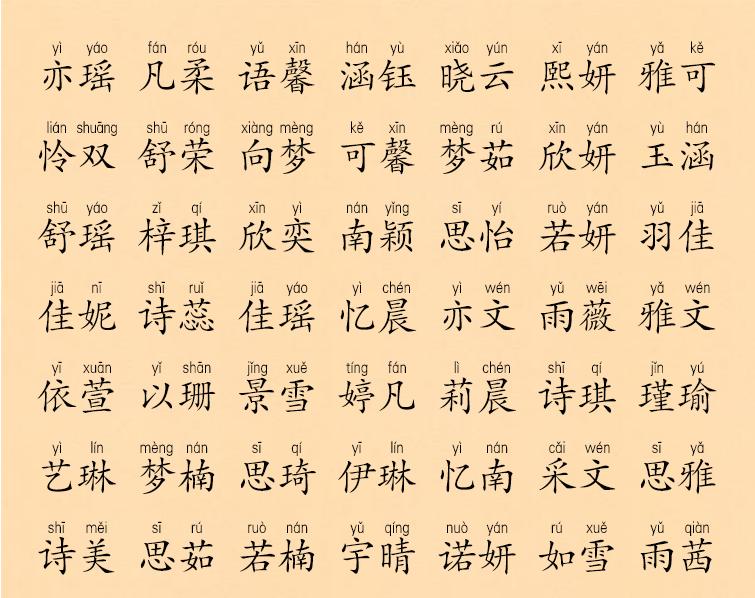 yì yáo fán róu yǔ xīn hán yù xiǎo yún xī yán yǎ kě
亦瑶 凡柔 语馨 涵钰 晓云 熙妍 雅可
lián shuāng shū róng xiàng mèng kě xīn mèng rú xīn yán yù hán
怜双 舒荣 向梦 可馨 梦茹 欣妍 玉涵
shū yáo zǐ qí xīn yì nán yǐng sī yí ruò yán yǔ jiā
舒瑶 梓琪 欣奕 南颖 思怡 若妍 羽佳
jiā nī shī ruǐ jiā yáo yì chén yì wén yǔ wēi yǎ wén
佳妮 诗蕊 佳瑶 忆晨 亦文 雨薇 雅文
yī xuān yǐ shān jǐng xuě tíng fán lì chén shī qí jǐn yú
依萱 以珊 景雪 婷凡 莉晨 诗琪 瑾瑜
yì lín mèng nán sī qí yī lín yì nán cǎi wén sī yǎ
艺琳 梦楠 思琦 伊琳 忆南 采文 思雅
shī měi sī rú ruò nán yǔ qíng nuò yán rú xuě yǔ qiàn
诗美 思茹 若楠 宇晴 诺妍 如雪 雨茜